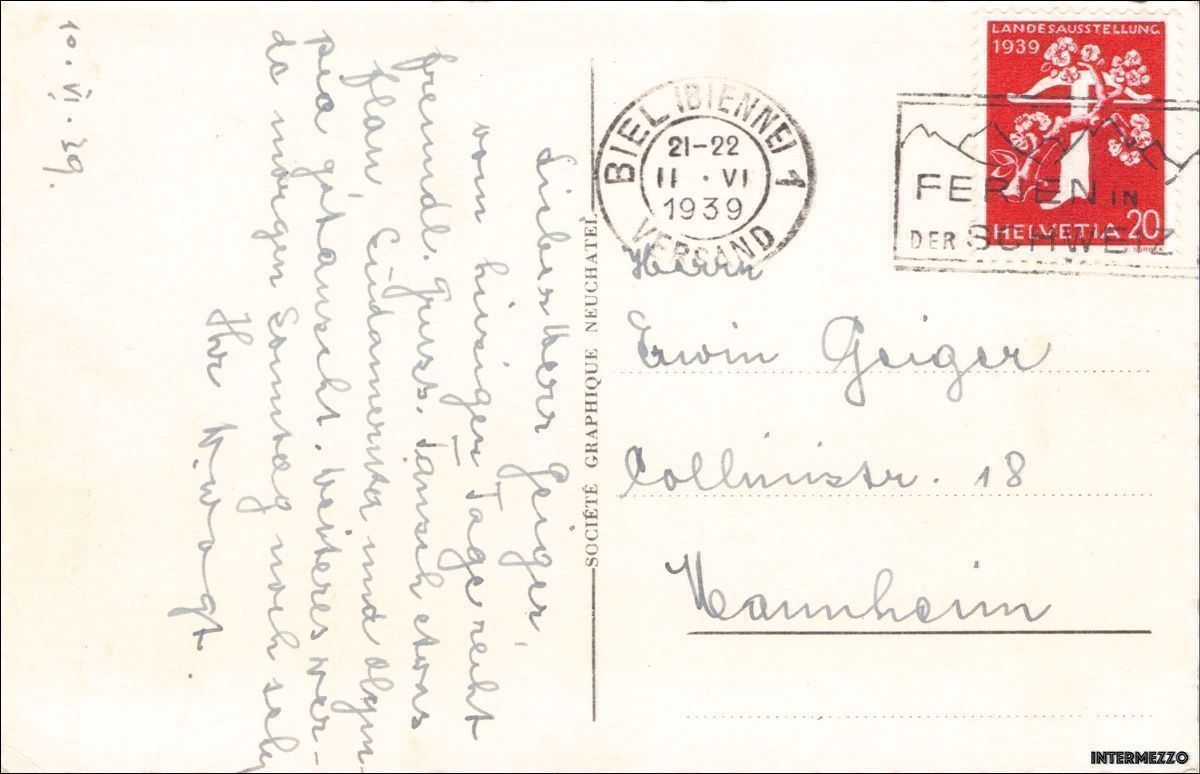 10. VI. 39.
Lieber Herr Geiger,
vom hiesigen Tage recht
freundl. Gruss. Tausch etwas
flau, Südamerika und Olym-
pia gut gesucht. Weiteres wer-
de morgen Sonntag noch sehen
Ihr
SOCIÉTÉ GRAPHIQUE NEUCHATEL
BIEL (BIENNE) 1
21-22
11 · VI
1939
VERSAND
LANDESAUSSTELLUNG
1939
HELVETIA 20
FERIEN IN
DER SCHWEIZ
Herrn
Erwin Geiger
Collinistr. 18
Mannheim
INTERMEZZO